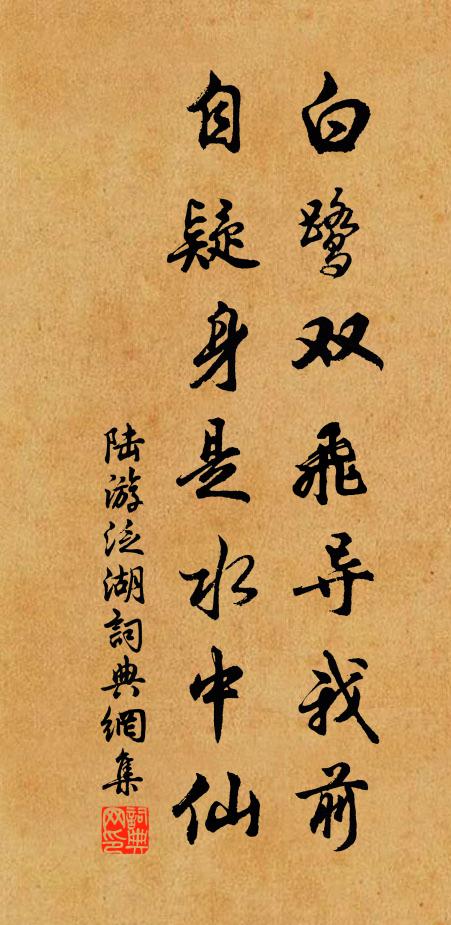 白鹭双飞导我前
自疑身是水中仙
陆游泛湖詞典網集
詞典網印